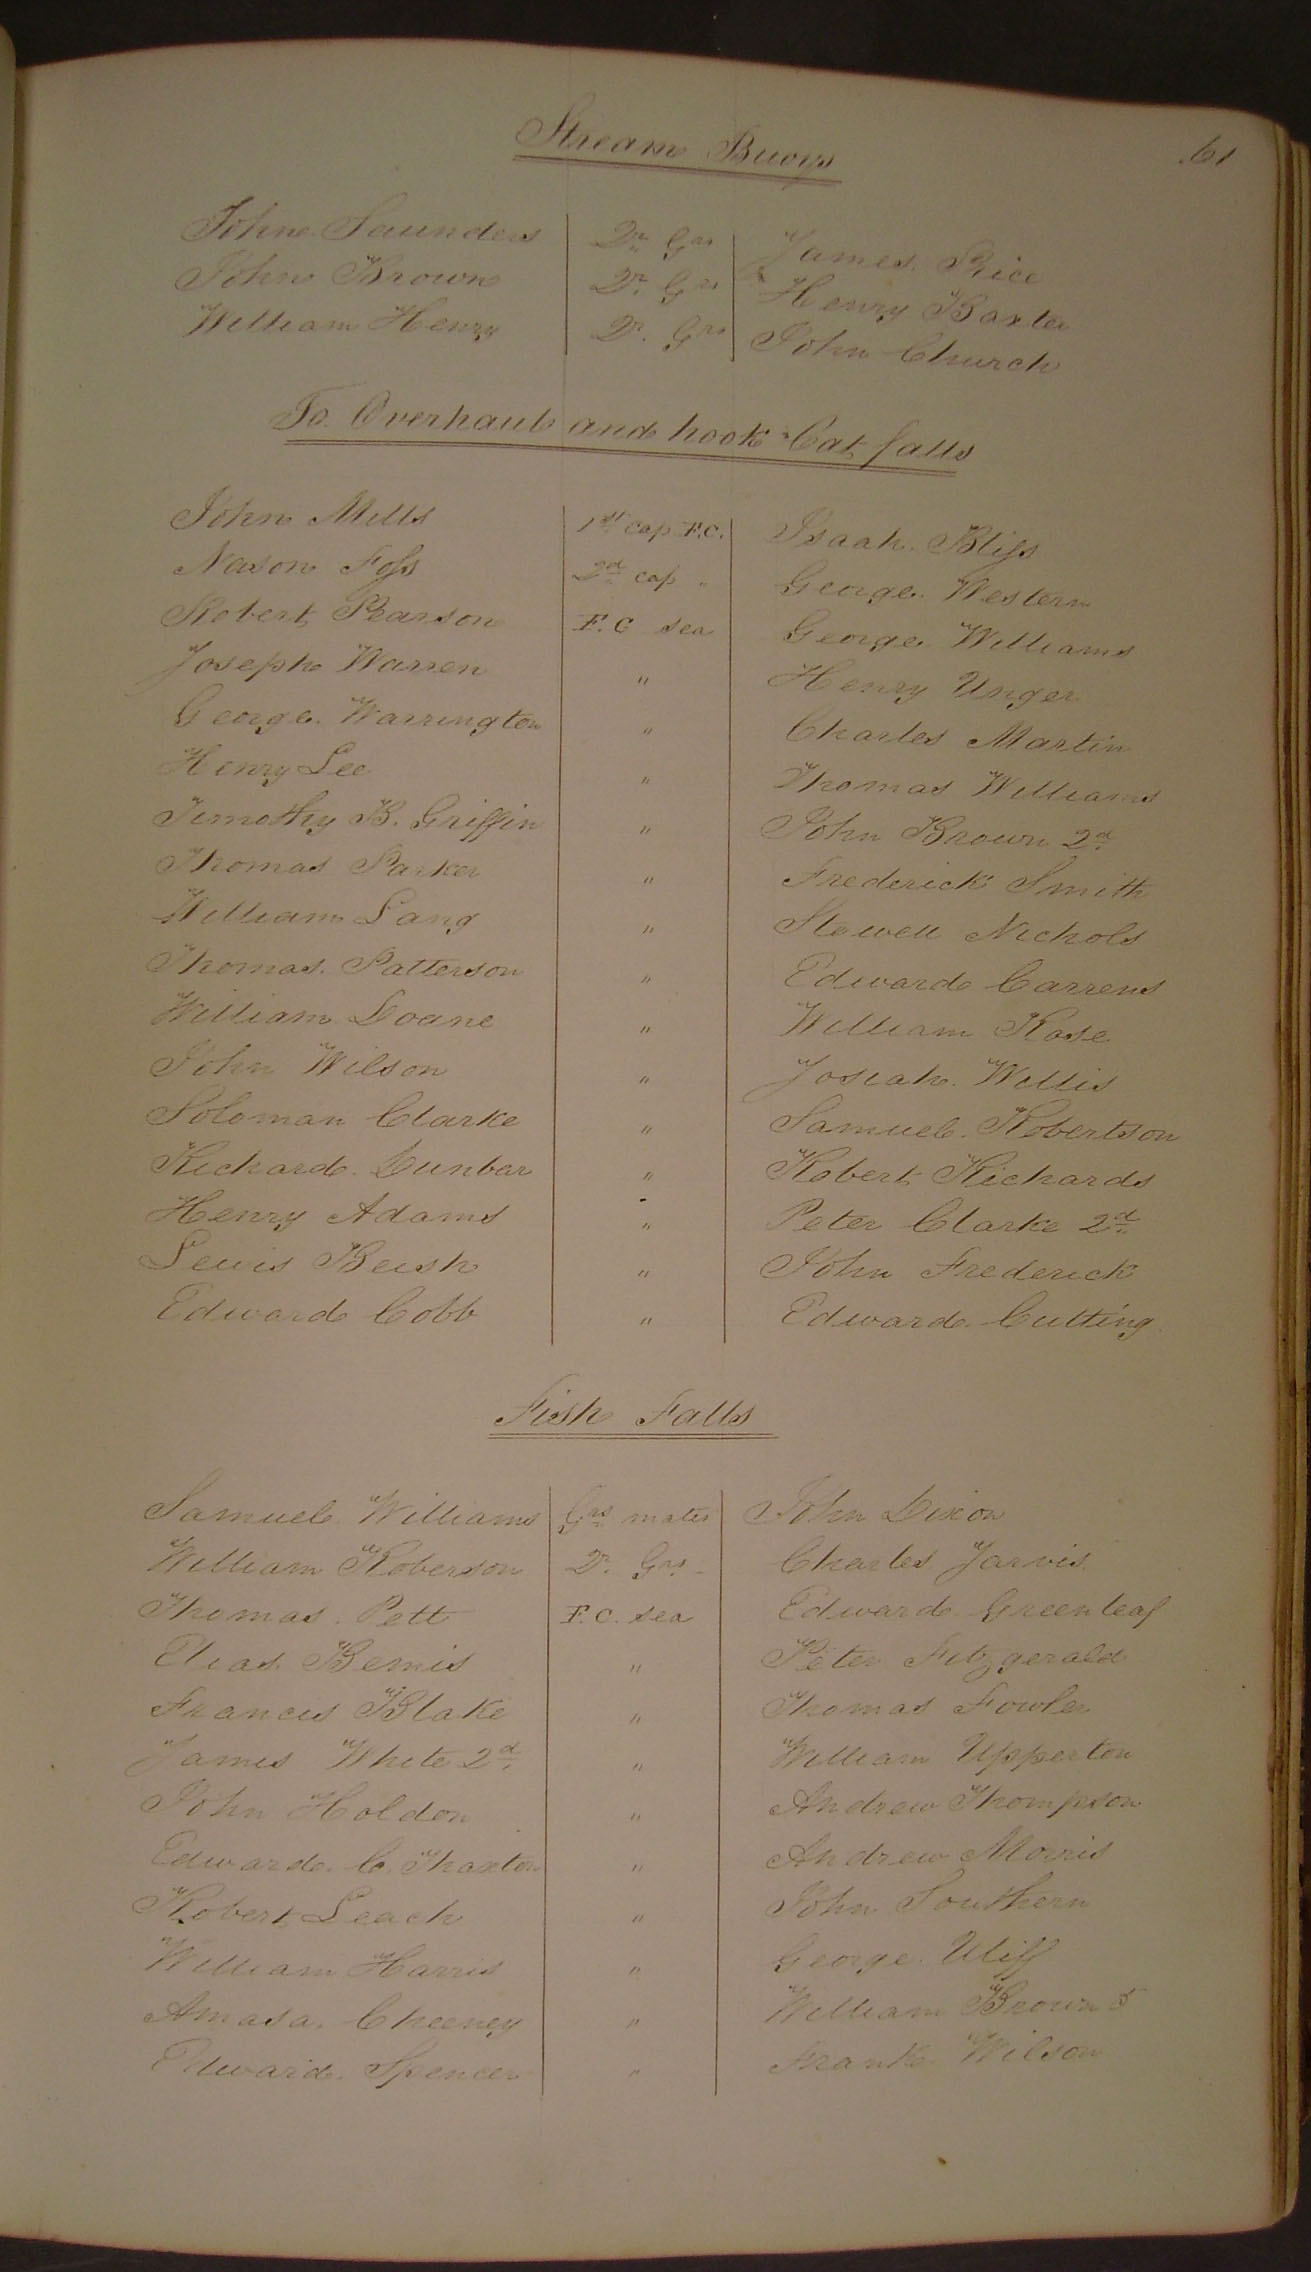 61
Stream Buoys
John Saunders Qr Grs James Rice
John Brown Qr. Grs Henry Baxter
William Henry Qr. Grs John Church
To Overhaul and hook Cat falls
John Mills 1st cap F.C. Isaah. Bliss
Nason Foss 2d cap " George. Western
Robert Pearson F.C sea George. Williams
Joseph Warren " Henry Unger
George. Warrington " Charles Martin
Henry Lee " Thomas Williams
Timothy B. Griffin " John Brown 2d
Thomas Parker " Frederick Smith
William Lang " Stowell Nichols
Thomas. Patterson " Edward Carrens
William Doane " William Rose
John Wilson " Josiah. Willis
Soloman Clarke " Samuel. Robertson
Richard. Dunbar " Robert Richards
Henry Adams " Peter Clarke 2d
Lewis Beush " John Frederick
Edward Cobb " Edward. Cutting
Fish Falls
Samuel Williams Grs mates John Dixon
William Roberson Qr. Grs. Charles Jarvis.
Thomas. Pett F.C. sea Edward. Greenleaf
Elias. Bemis " Peter Fitzgerald
Francis Blake " Thomas Fowler
James White 2d. " William Upperton
John Holdon " Andrew Thompson
Edward. C. Thaxton " Andrew Morris
Robert Leach " John Southern
William Harris " George. Uliff
Amasa. Cheeney " William Brown 5
Edward. Spencer " Frank Wilson